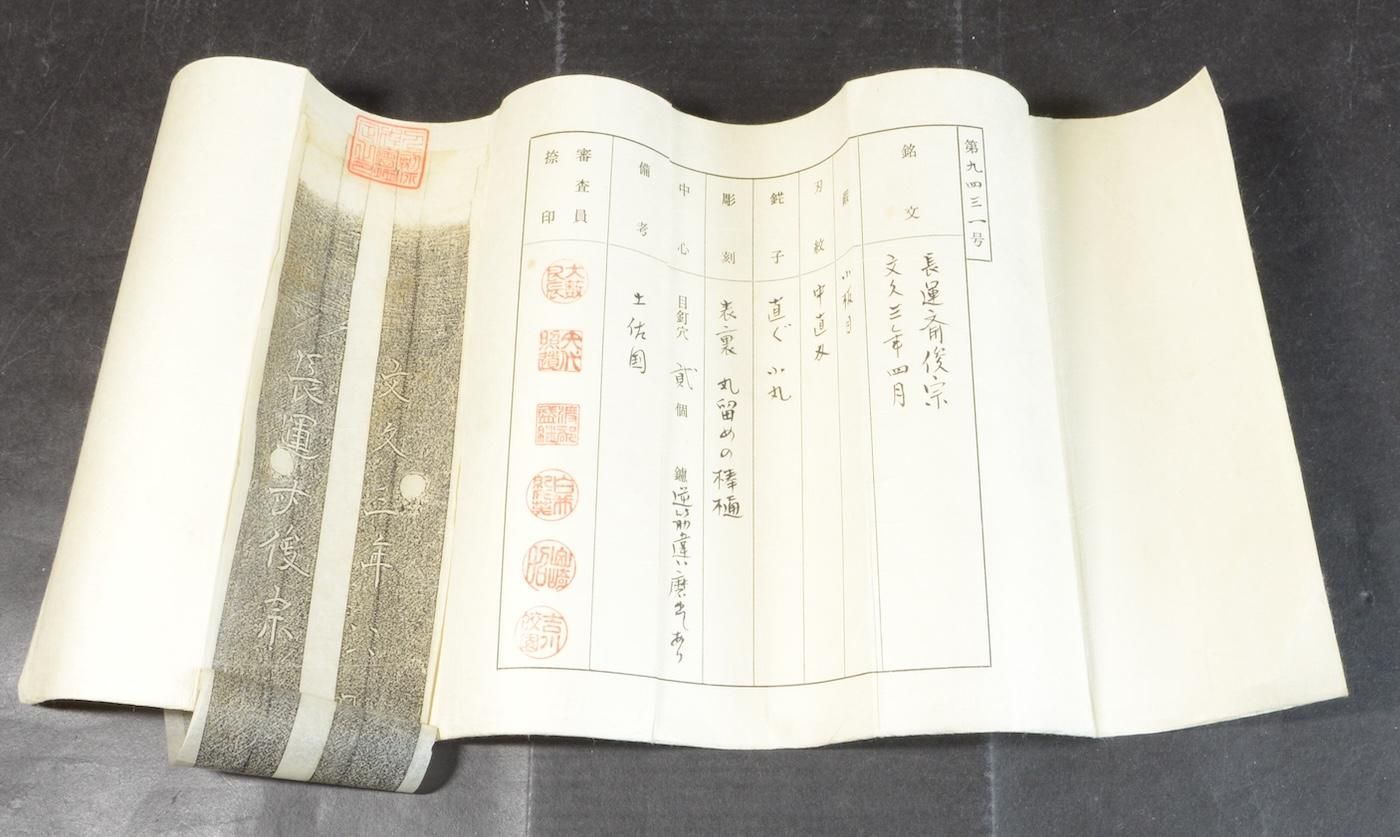 第九四三一号
銘文
長運斎俊宗
文久三年四月
鍛 小板目
刃紋 中直刃
鋩子 直ぐ小丸
彫刻 表裏丸留めの棒樋
中心 目釘穴 貳個 鑢 逆い筋違い磨出しあり
備考 土佐国
審査員
捺印
文久三年
長運斎俊宗